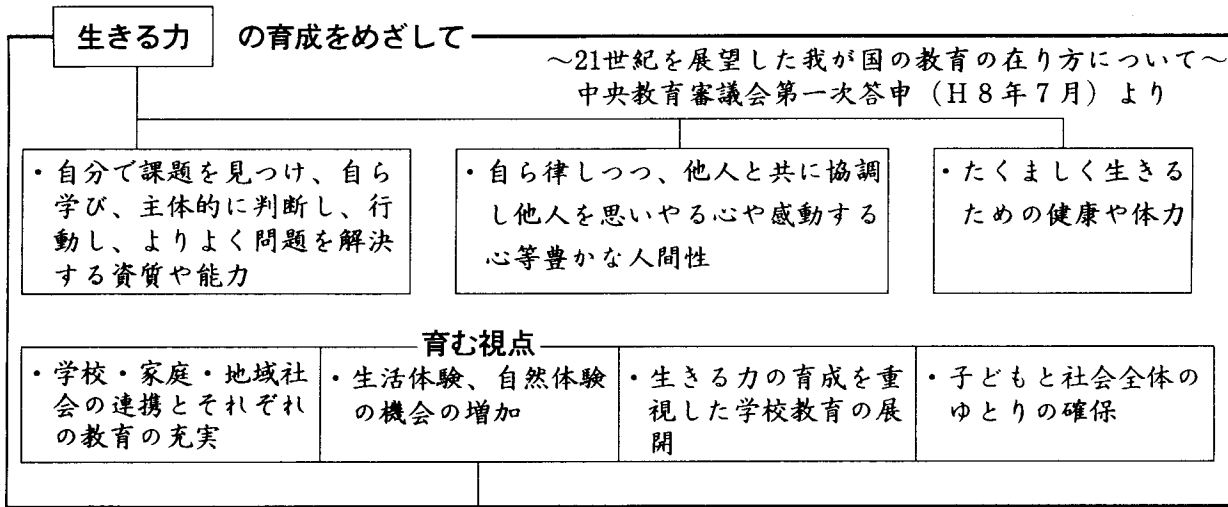 生きる力 の育成をめざして
～21世紀を展望した我が国の教育の在り方について～
中央教育審議会第一次答申（H8年7月）より
・自分で課題を見つけ、自ら
学び、主体的に判断し、行
動し、よりよく問題を解決
する資質や能力
・自ら律しつつ、他人と共に協調
し他人を思いやる心や感動する
心等豊かな人間性
・たくましく生きる
ための健康や体力
育む視点
・学校・家庭・地域社
会の連携とそれぞれ
の教育の充実
・生活体験、自然体験
の機会の増加
・生きる力の育成を重
視した学校教育の展
開
・子どもと社会全体の
ゆとりの確保